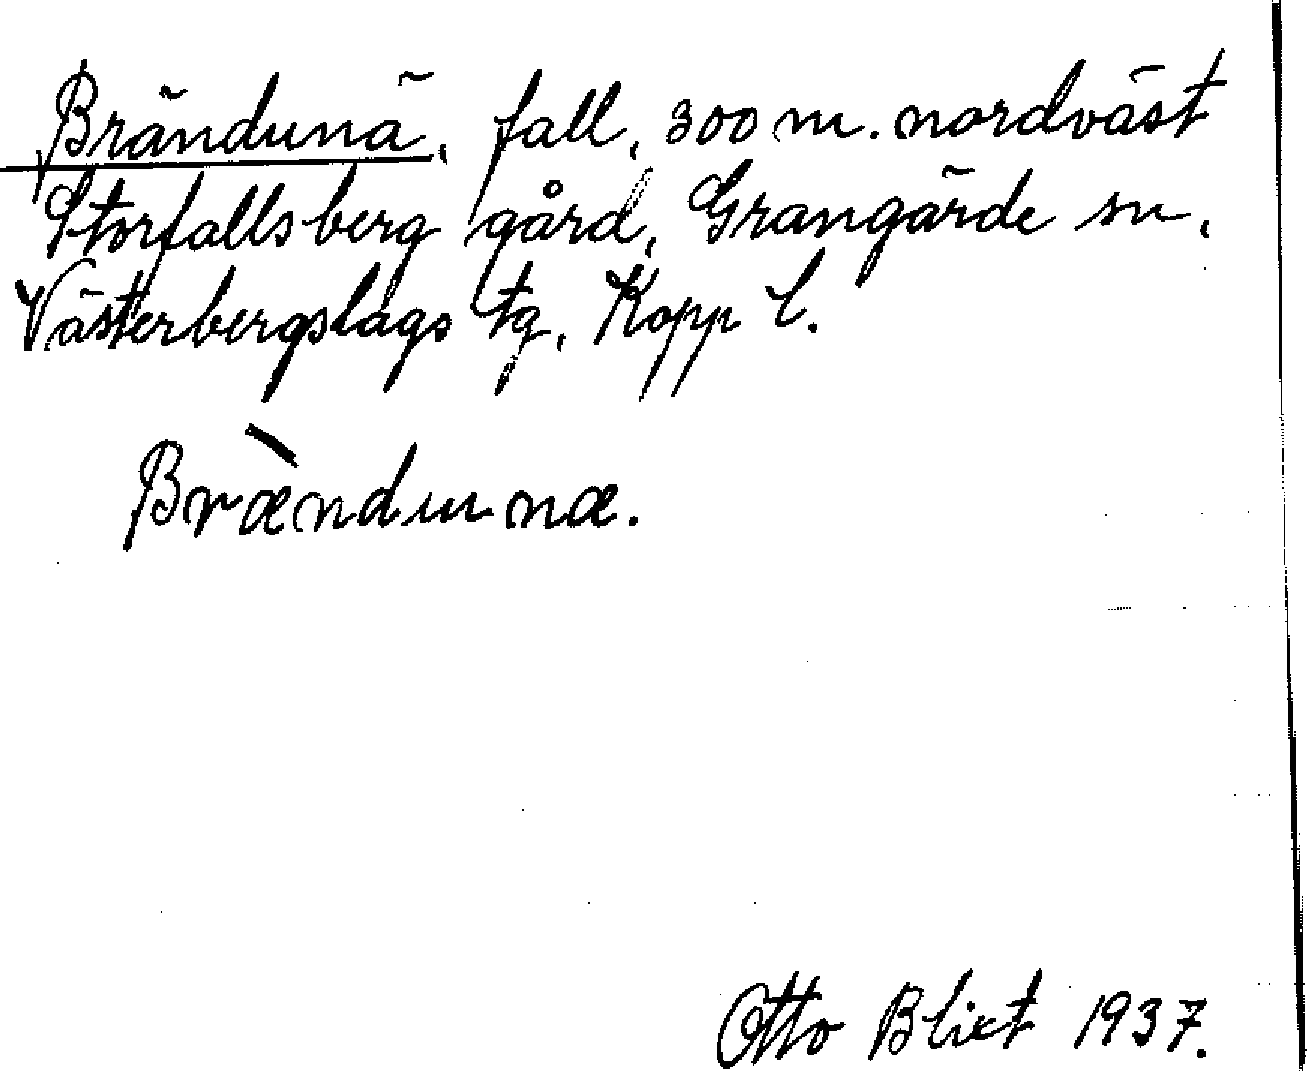 Brändunä, fall, 300 m. nordväst
Storfallsberg gård, Grangärde sn,
Västerbergslags tg, Kopp l.
Brændunæ.
Otto Blixt 1937.